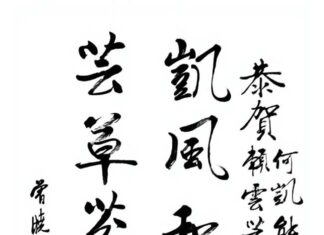 恭賀
何凱
雲
凱風和
芸草芬
曾曉